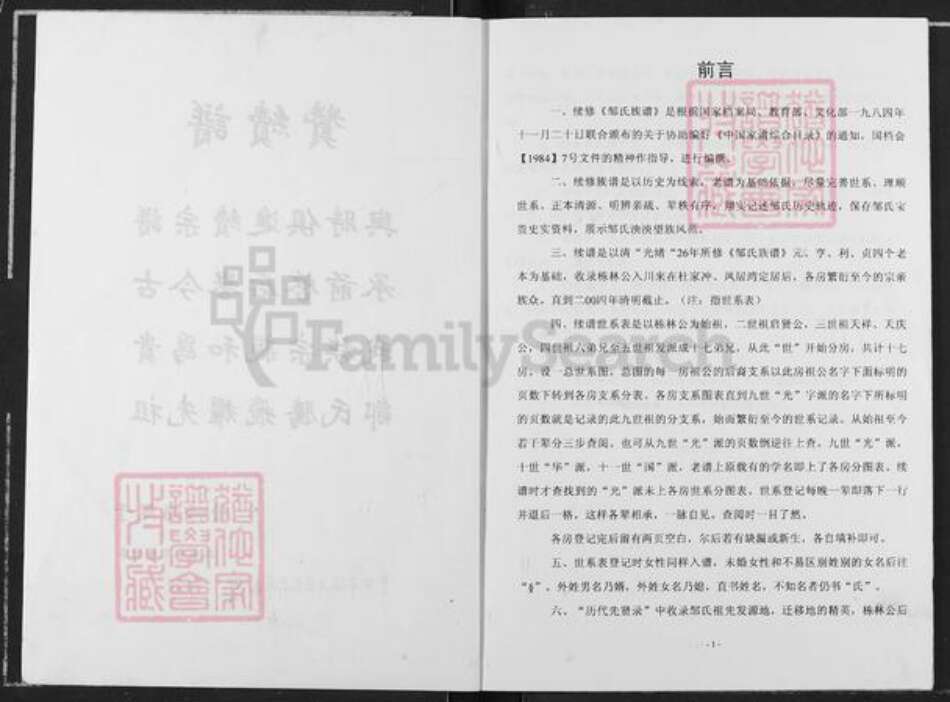 前言
一、续修《邹氏族谱》是根据国家档案局、教育部、文化部一九八四年
十一月二十日联合颁布的关于协助编好《中国家谱综合目录》的通知，国档会
【1984】7号文件的精神作指导，进行编撰。
二、续修族谱是以历史为线索，老谱为基础依据，尽量完善世系、理顺
世系、正本清源、明辨亲疏、辈秩有序，翔实记述邹氏历史轨迹，保存邹氏宝
贵史实资料，展示邹氏泱泱望族风范。
三、续谱是以清“光绪“26年所修《邹氏族谱》元、亨、利、贞四个老
本为基础，收录栋林公入川来在杜家冲、凤居湾定居后，各房繁衍至今的宗亲
族众。直到二00四年清明截止。（注：指世系表）
四、续谱世系表是以栋林公为始祖，二世祖启贤公，三世祖天祥、天庆
公，四世祖六弟兄至五世祖发派成十七弟兄，从此“世”开始分房，共计十七
房，设一总世系图，总图的每一房祖公的后裔支系以此房祖公名字下面标明的
页数下转到各房支系分表。各房支系图表直到九世“光”字派的名字下所标明
的页数就是记录的此九世祖的分支系，始而繁衍至今的世系记录。从始祖至今
若干辈分三步查阅。也可从九世“光”派的页数倒逆往上查。九世“光”派、
十世“华”派，十一世“国”派，老谱上原载有的学名即上了各房分图表。续
谱时才查找到的“光”派未上各房世系分图表。世系登记每晚一辈即落下一行
并退后一格，这样各辈相承，一脉自见，查阅时一目了然。
各房登记完后留有两页空白，尔后若有缺漏或新生，各自填补即可。
五、世系表登记时女性同样入谱，未婚女性和不易区别姓别的女名后注
“♀”，外姓男名乃婿，外姓女名乃媳，直书姓名，不知名者仍书“氏”。
六、“历代先贤录”中收录邹氏祖先发源地，迁移地的精英，栋林公后
- 1 -
FamilySearch